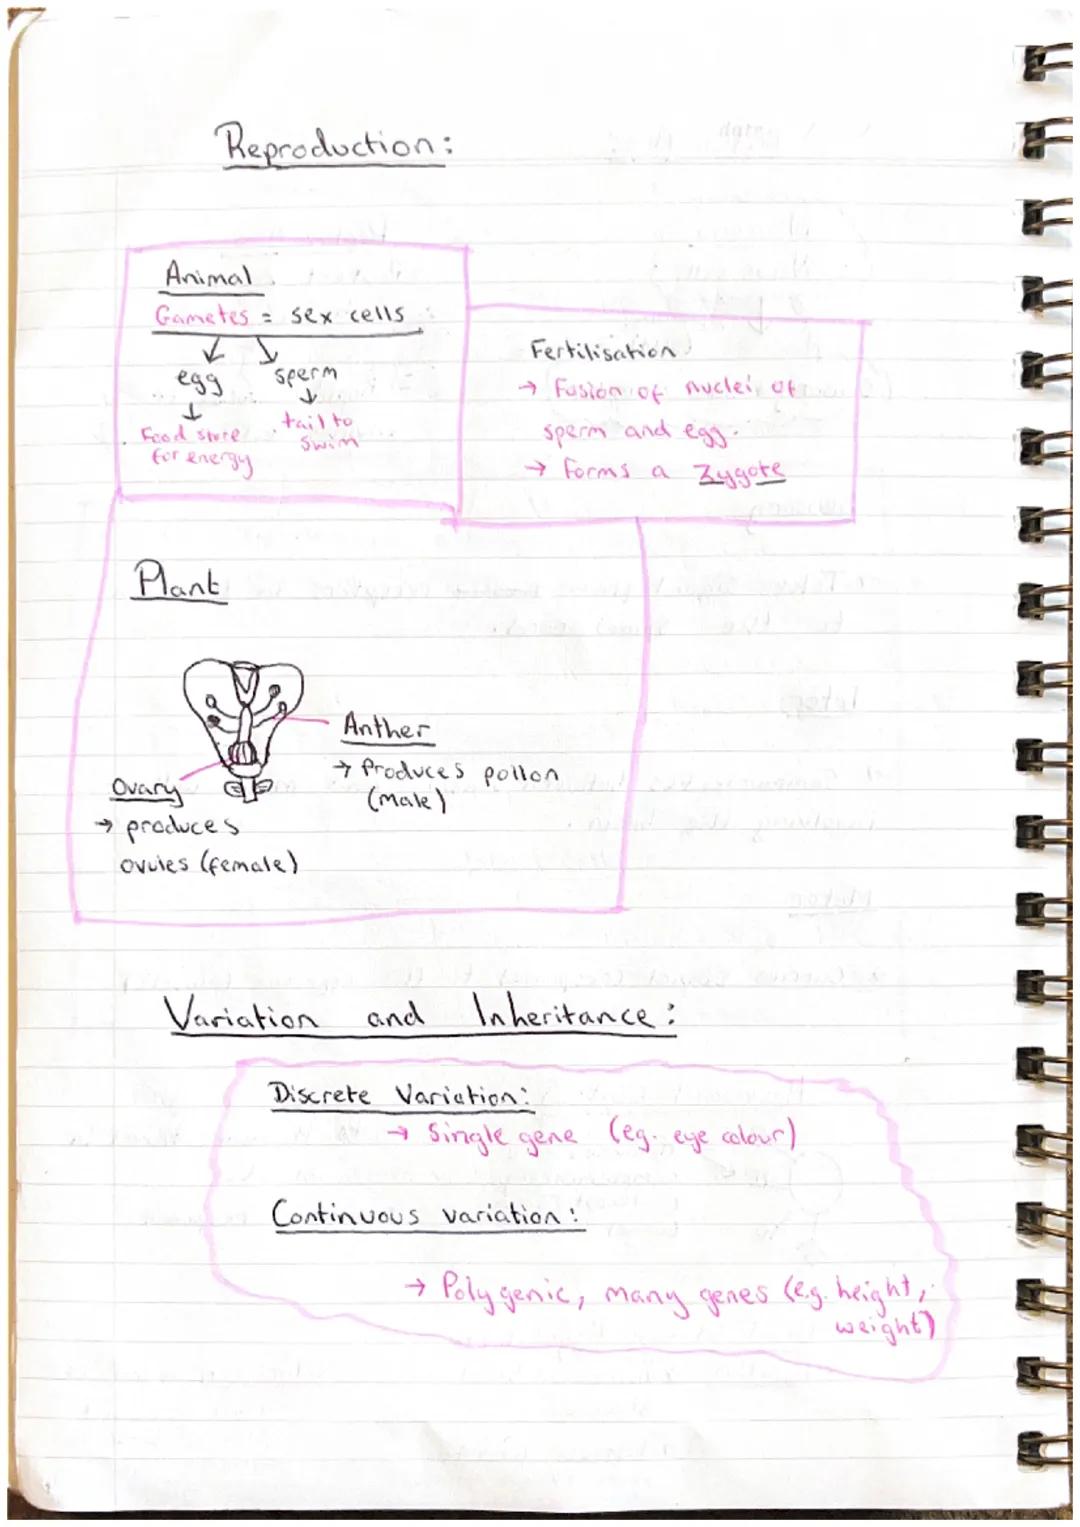 Reproduction:
Animal
Gametes = sex cells
egg sperm
Food store
for energy
tail to
swim
Fertilisation
→ Fusion of nuclei of
sperm and egg.
→ Forms a Zygote
Plant
Anther
→ Produces pollon
(male)
Ovary
→ produces
ovules (female)
Variation and Inheritance:
Discrete Variation:
→ Single gene (eg. eye colour)
Continuous variation:
→ Polygenic, many genes (e.g. height,
weight)